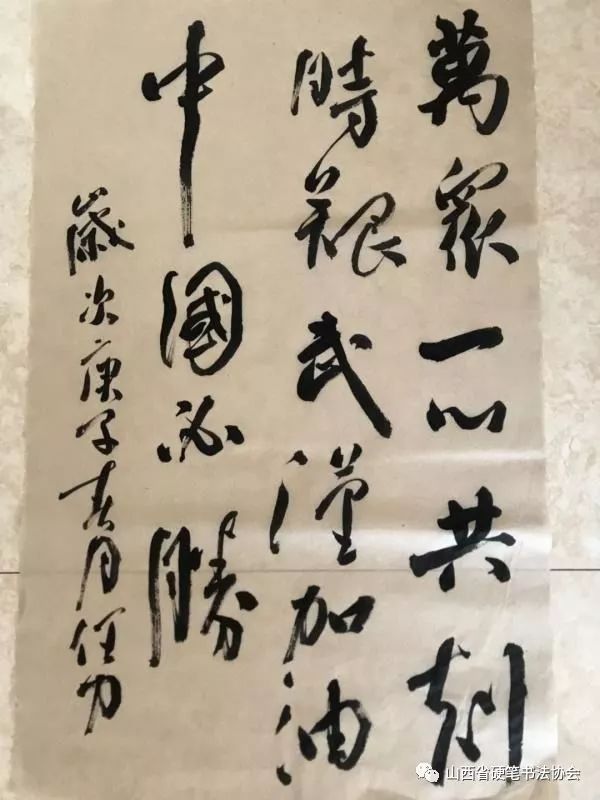 萬眾一心共剋
時艱武漢加油
中國必勝
歲次庚子春月任力
山西省硬笔书法协会